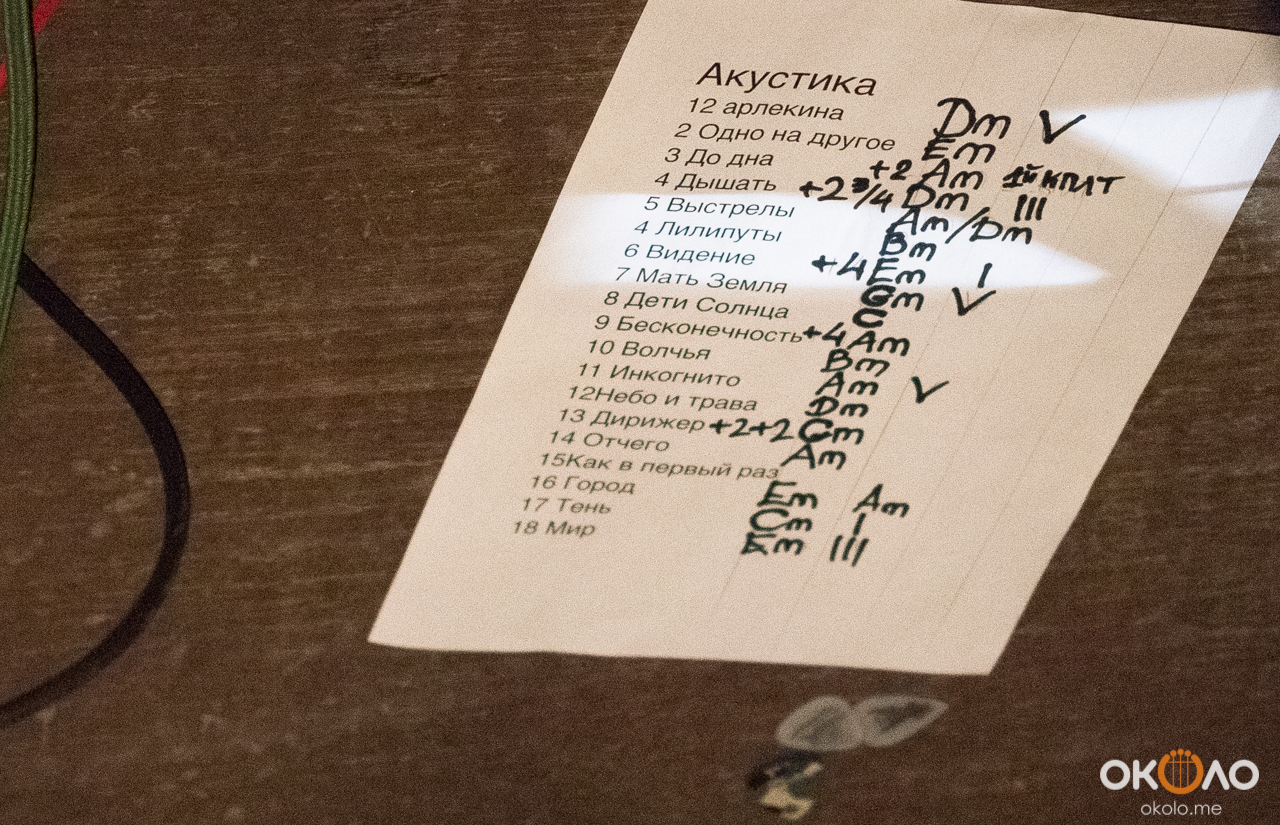 Акустика
12 арлекина Dm V
2 Одно на другое Em
3 До дна +2 Am 1й куплт
4 Дышать +2 3/4 Dm III
5 Выстрелы Am/Dm
4 Лилипуты Bm
6 Видение +4 Em I
7 Мать Земля Gm V
8 Дети Солнца C
9 Бесконечность +4 Am
10 Волчья Bm
11 Инкогнито Am V
12Небо и трава Dm
13 Дирижер +2+2 Cm
14 Отчего Am
15Как в первый раз
16 Город Em Am
17 Тень Cm I
18 Мир Em III
ОКОЛО
okolo.me